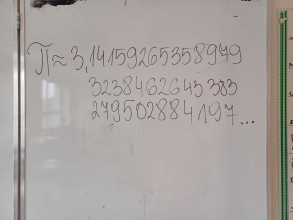 П≈3,14159265358979
3238462643383
279502884197...